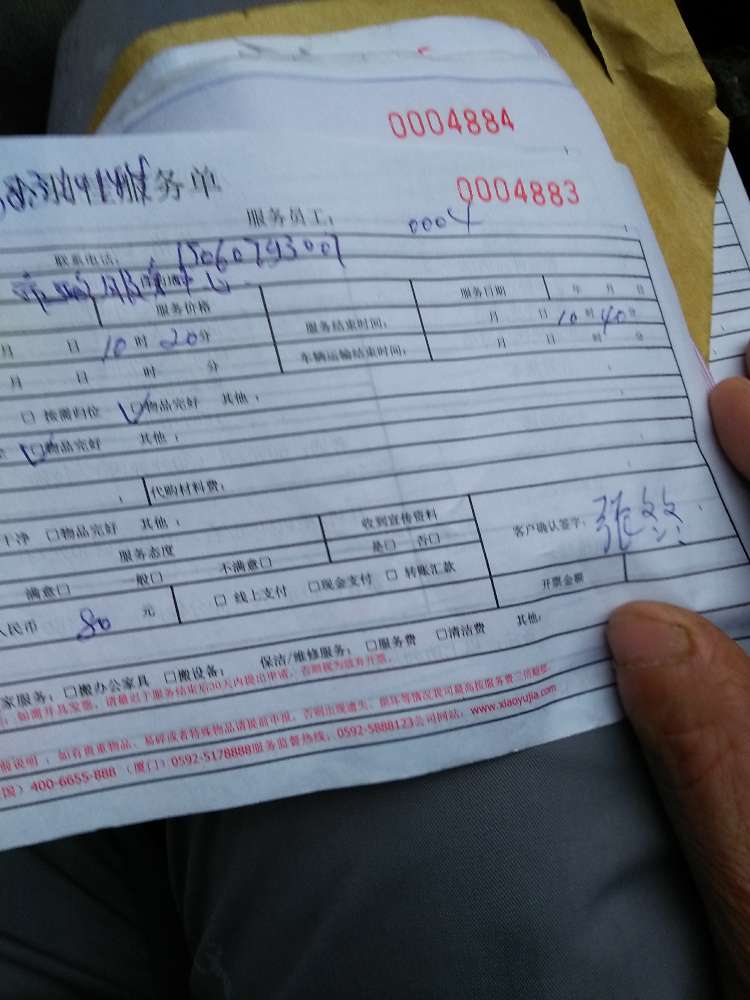 0004884
务单
0004883
服务员工： 0004
联系电话： 15060793007
服务价格 服务日期 年 月 日
月 日 10 时 20 分 服务结束时间： 月 日 10 时 40 分
月 日 时 分 车辆运输结束时间： 月 日 时 分
□ 按需归位 □物品完好 其他：
□物品完好 其他：
代购材料费：
干净 □物品完好 其他： 收到宣传资料 客户确认签字： 张
服务态度 是□ 否□
满意□ 般□ 不满意□
人民币 80 元 □ 线上支付 □现金支付 □ 转账汇款 开票金额
家服务：□搬办公家具 □搬设备； 保洁/维修服务：□服务费 □清洁费 其他：
：如需开具发票，请最迟于服务结束后30天内提出申请，否则视为放弃开票。
说明：如有贵重物品、易碎或者特殊物品请提前申报，否则出现遗失、损坏等情况我司最高按服务费三倍赔偿。
国）400-6655-888 （厦门）0592-5178888服务监督热线：0592-5888123公司网站：www.xiaoyujia.com